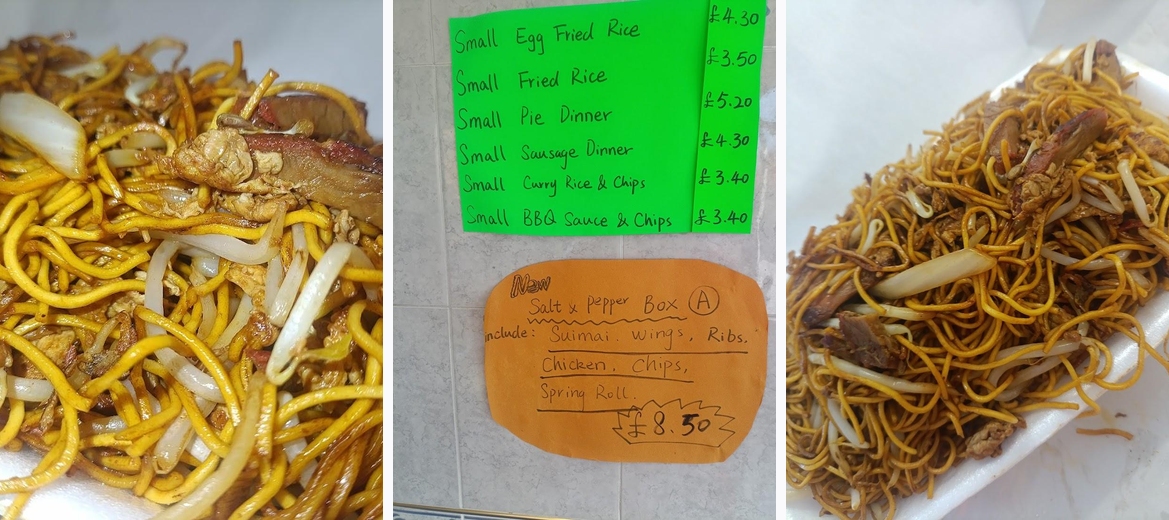 Small Egg Fried Rice £4.30
Small Fried Rice £3.50
Small Pie Dinner £5.20
Small Sausage Dinner £4.30
Small Curry Rice & Chips £3.40
Small BBQ Sauce & Chips £3.40
New
Salt & Pepper Box A
include: Suimai. Wings, Ribs.
Chicken. Chips,
Spring Roll.
£8.50